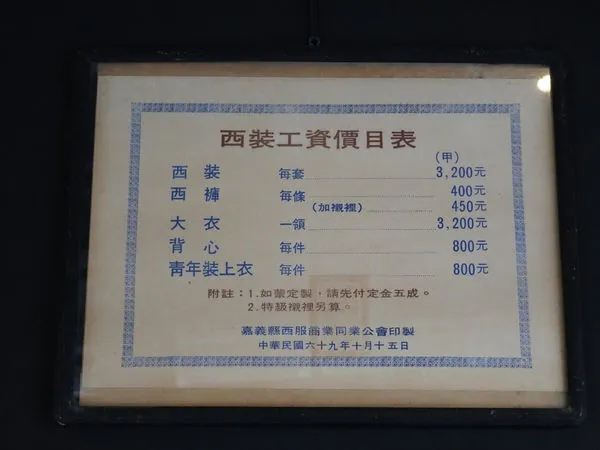 西裝工資價目表
(甲)
西裝 每套 3,200元
西褲 每條 400元
(加襯裡) 450元
大衣 一領 3,200元
背心 每件 800元
青年裝上衣 每件 800元
附註：1.如蒙定製，請先付定金五成。
2.特級襯裡另算。
嘉義縣西服商業同業公會印製
中華民國六十九年十月十五日